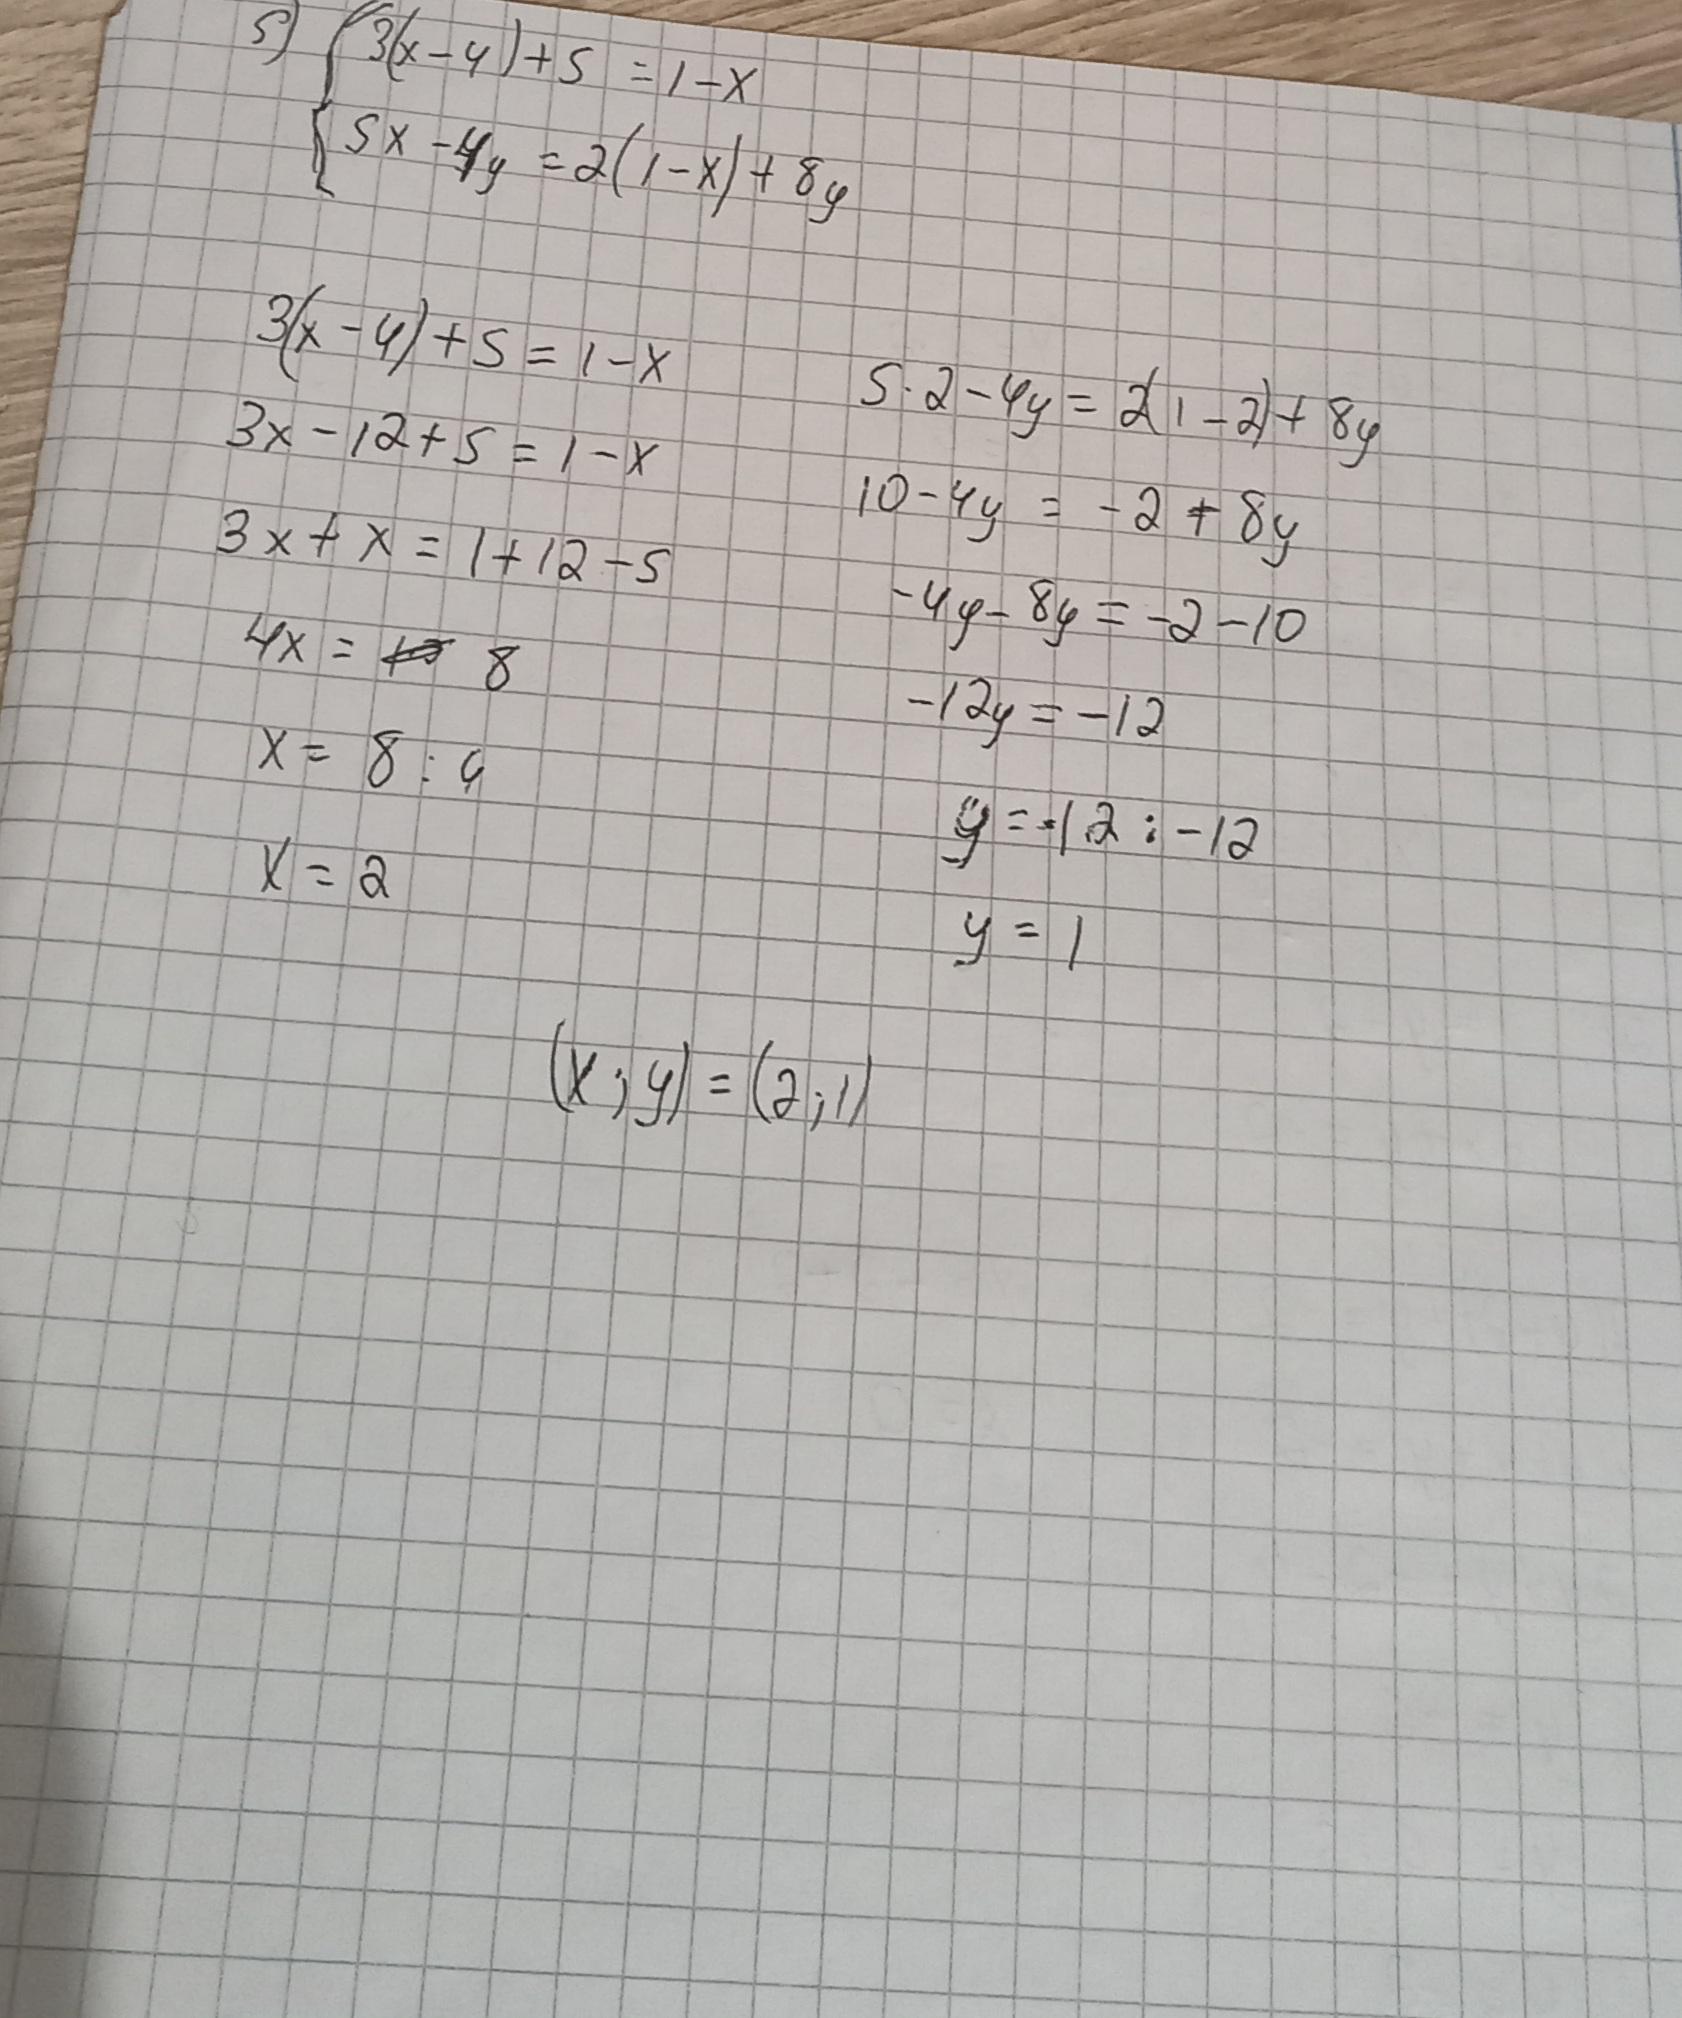 5) { 3(x-4)+5 = 1-x
5x -4y = 2(1-x)+8y
3(x-4)+5 = 1-x
3x-12+5 = 1-x
3x+x = 1+12-5
4x = 8
x = 8:4
x = 2
5·2-4y = 2(1-2)+8y
10-4y = -2+8y
-4y-8y = -2-10
-12y = -12
y = -12:-12
y = 1
(x;y) = (2;1)